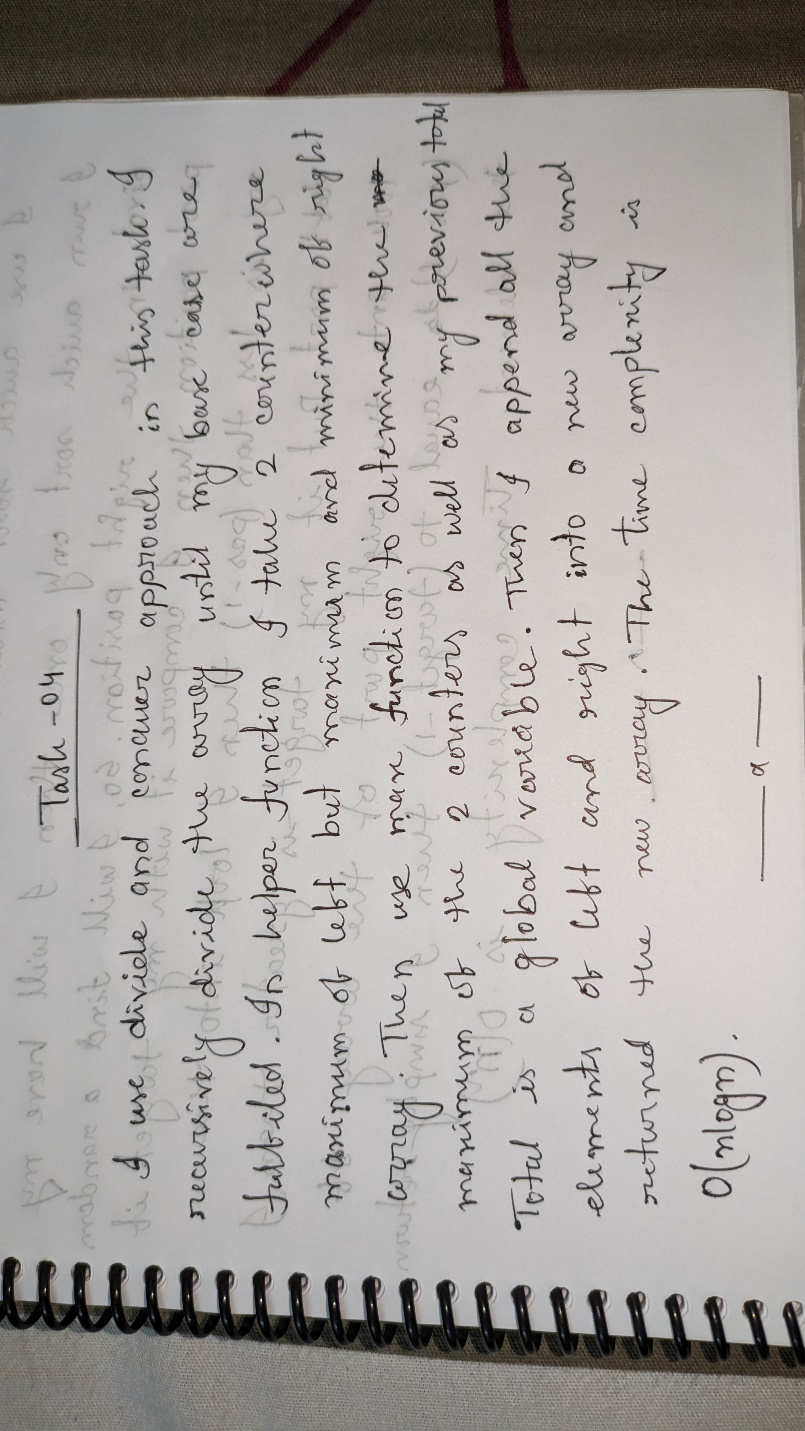 Task - 04
I use divide and conquer approach in this task. I
recursively divide the array until my base case are
fulfiled. In helper function I take 2 counter where
maximum of left but maximum and minimum of right
array. Then use max function to determine the
maximum of the 2 counters as well as my previous total
Total is a global variable. Then I append all the
elements of left and right into a new array and
returned the new array. The time complexity is
O(nlogn).